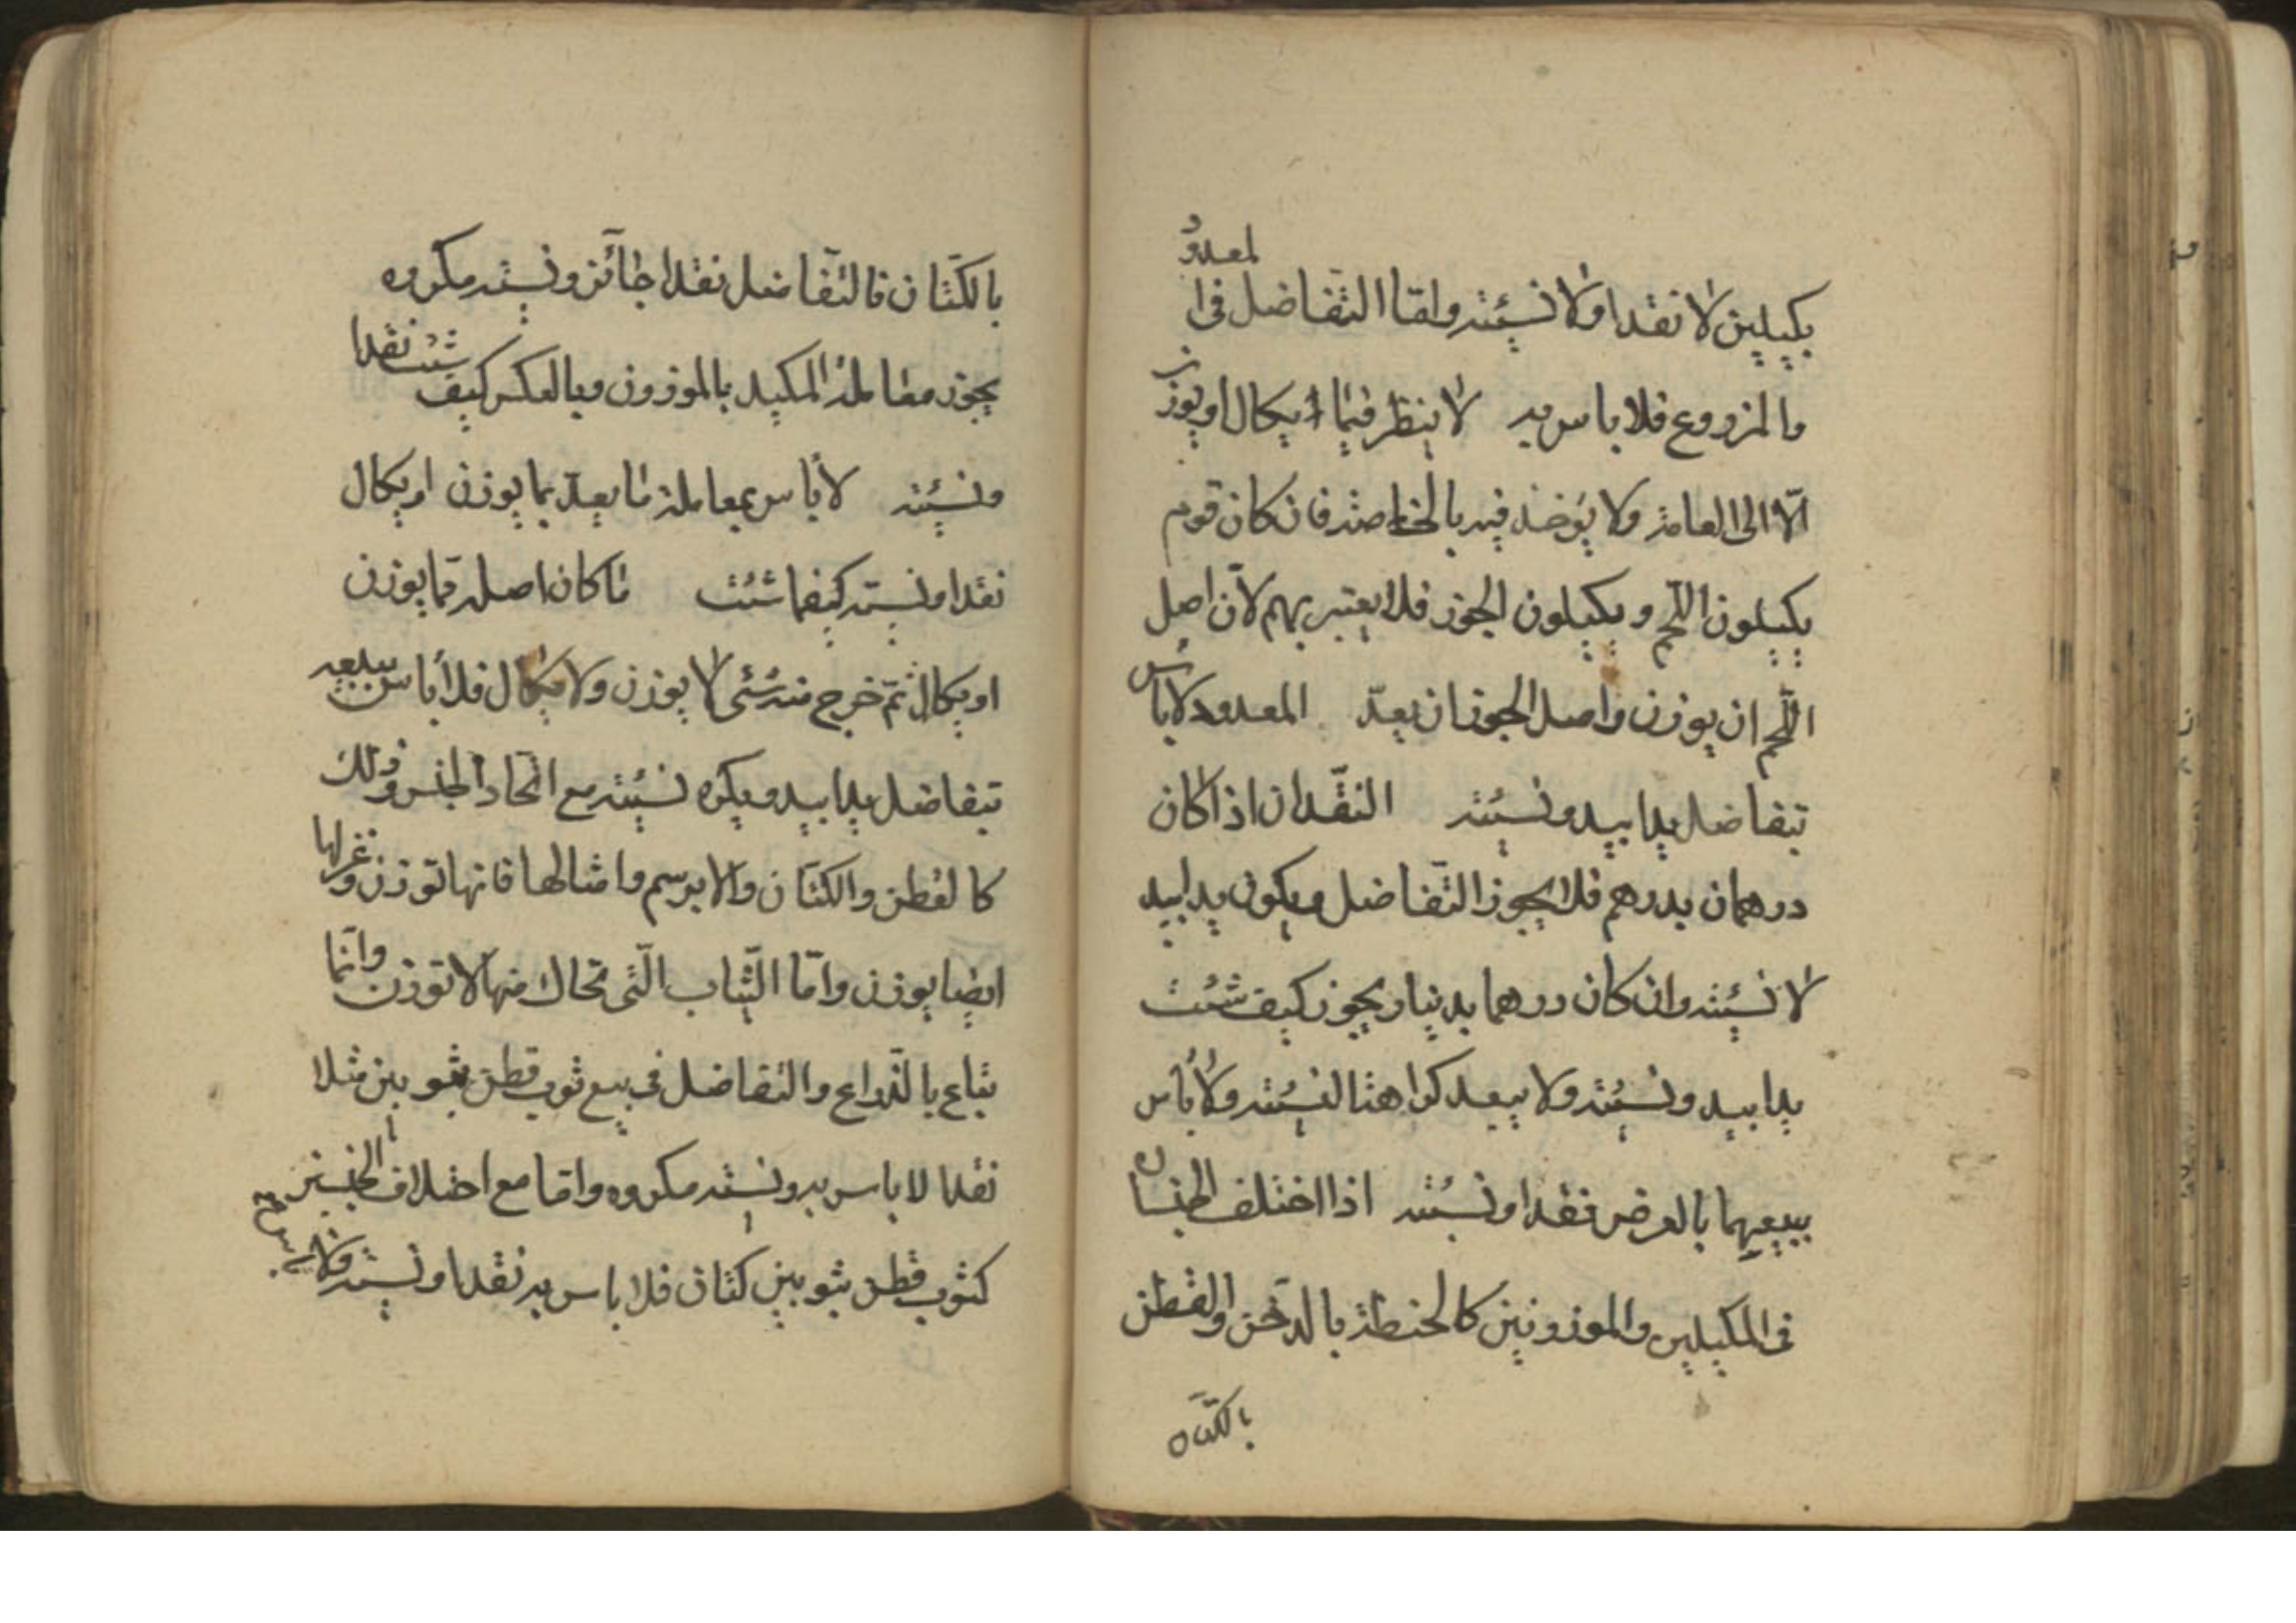 بكيلين لا نقدا ولا نسيئة واما التفاضل فى المعدود
والمزروع فلا باس به لا ينظر فيما يكال او يوزن
الّا الى العامة ولا يؤخذ فيه بالخاصة فان كان قوم
يكيلون اللّحم و يكيلون الجوز فلا يعتبر بهم لانّ اصل
اللّحم ان يوزن واصل الجوز ان يعدّ المعدود لا باس
بتفاضل يدا بيد ونسيئة النقدان اذا كان
درهمان بدرهم فلا يجوز التّفاضل ويكون يدا بيد
لا نسيئة وان كان درهما بدينار يجوز كيف شئت
يدا بيد ونسيئة ولا يبعد كراهتا لنسيئة ولا باس
ببيعهما بالعرض نقدا ونسيئة اذا اختلف الجنسان
فى المكيلين والموزونين كالحنطة بالدّخن والقطن
بالكتّان
بالكتّان فالتّفاضل نقدا جائز ونسيئة مكروه
يجوز معاملة المكيل بالموزون وبالعكس كيف شئت نقدا
ونسيئة لا باس بمعاملة ما يعدّ بما يوزن او يكال
نقدا ونسيئة كيفما شئت ما كان اصله ممّا يوزن
او يكال ثمّ خرج منه شئى لا يوزن ولا يكال فلا باس ببيعه
بتفاضل يدا بيد ويكره نسيئة مع اتّحاد الجنس وذلك
كالقطن والكتّان والابرسم وامثالها فانها توزن وغزلها
ايضا يوزن وامّا الثّياب الّتى تحاك منها لا توزن وانّما
تباع بالذّراع والتفاضل فى بيع ثوب قطن بثوبين مثلا
نقدا لا باس به ونسيئة مكروه واما مع اختلاف الجنسين
كثوب قطن بثوبين كتان فلا باس به نقدا ونسيئة ولا باس